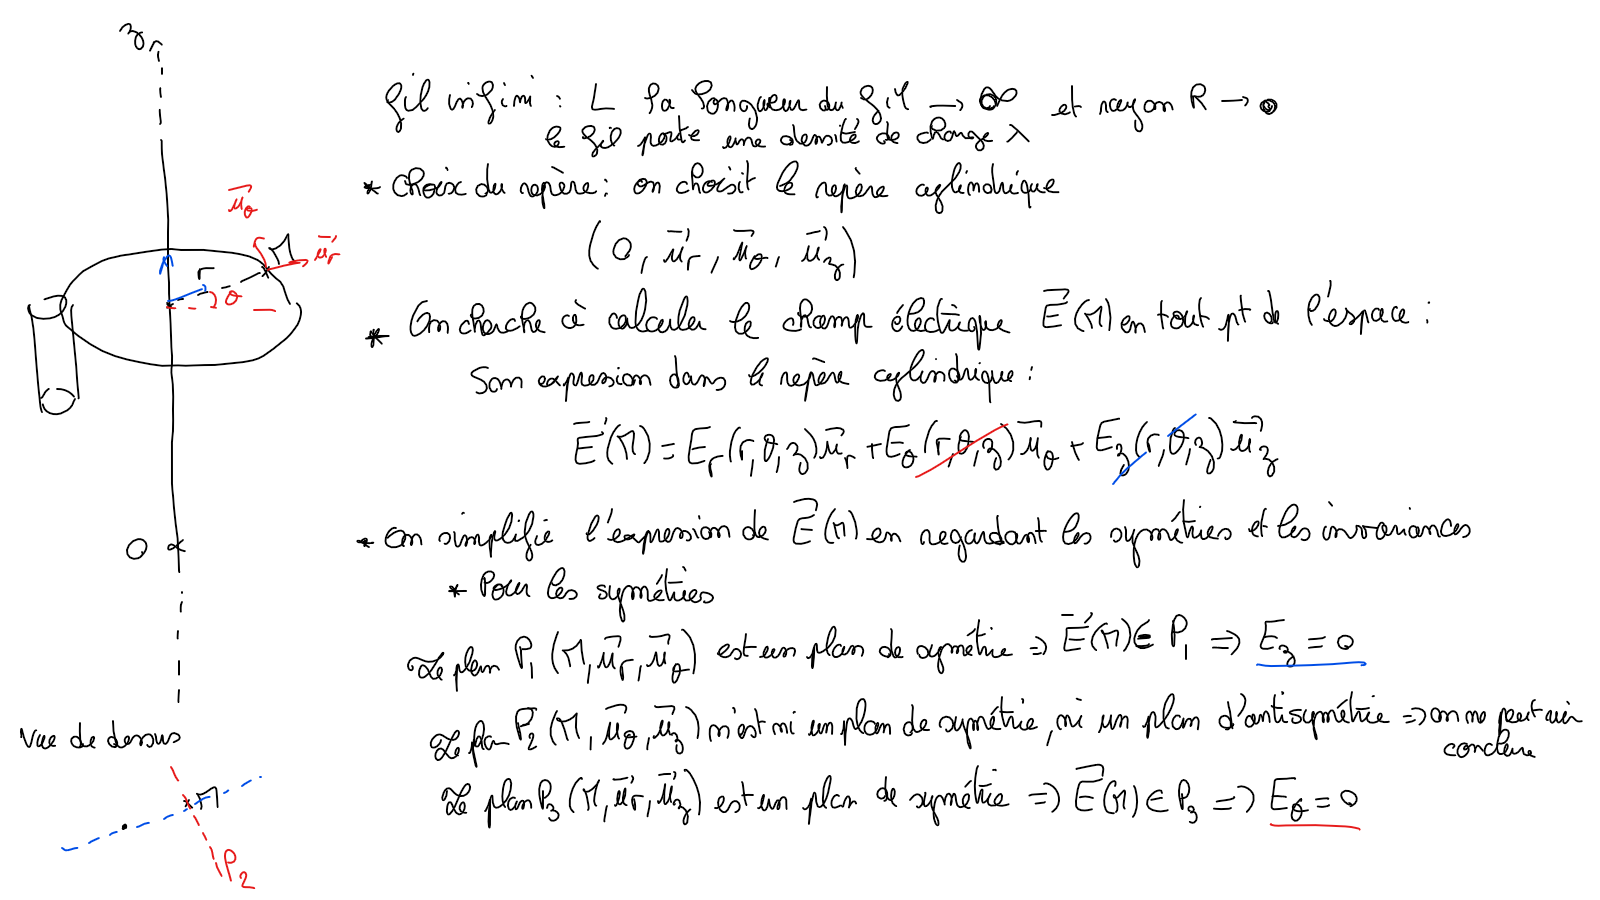 z
fil infini : L la longueur du fil → ∞ et rayon R → 0
le fil porte une densité de charge λ
* Choix du repère : on choisit le repère cylindrique
(O, u⃗r, u⃗θ, u⃗z)
u⃗θ
M
u⃗r
r
θ
* On cherche à calculer le champ électrique E⃗(M) en tout pt de l'espace :
Son expression dans le repère cylindrique :
E⃗(M) = Er(r,θ,z) u⃗r + Eθ(r,θ,z) u⃗θ + Ez(r,θ,z) u⃗z
* On simplifie l'expression de E⃗(M) en regardant les symétries et les invariances
O
* Pour les symétries
Le plan P₁ (M, u⃗r, u⃗θ) est un plan de symétrie ⇒ E⃗(M) ∈ P₁ ⇒ Ez = 0
Le plan P₂ (M, u⃗θ, u⃗z) n'est ni un plan de symétrie, ni un plan d'antisymétrie ⇒ on ne peut rien
conclure
Le plan P₃ (M, u⃗r, u⃗z) est un plan de symétrie ⇒ E⃗(M) ∈ P₃ ⇒ Eθ = 0
Vue de dessus
M
P₂